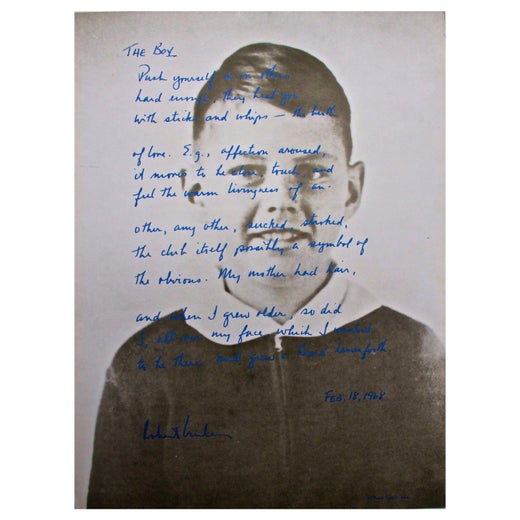 THE BOY
Push yourself in on others
hard enough, they beat you
with sticks and whips — the birth
of love. E.g., affection aroused,
it moves to be close, touch, and
feel the warm livingness of an-
other, any other, sucked, stroked,
the club itself possibly a symbol of
the obvious. My mother had hair,
and when I grew older, so did
I, all over my face, which I wanted
to be there, and grew a beard henceforth.
FEB, 18, 1968
Robert Creeley